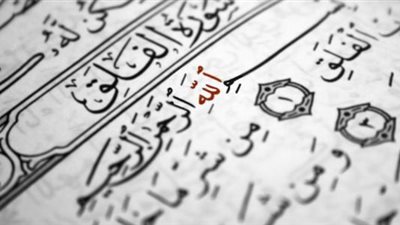 كُن لَّهُ
سُورَةُ الفَلَقِ
اللَّهِ الرَّحْمَٰنِ الرَّحِيمِ
الْفَلَقِ ١ مِن شَرِّ مَا خَ
٢ وَمِن شَ